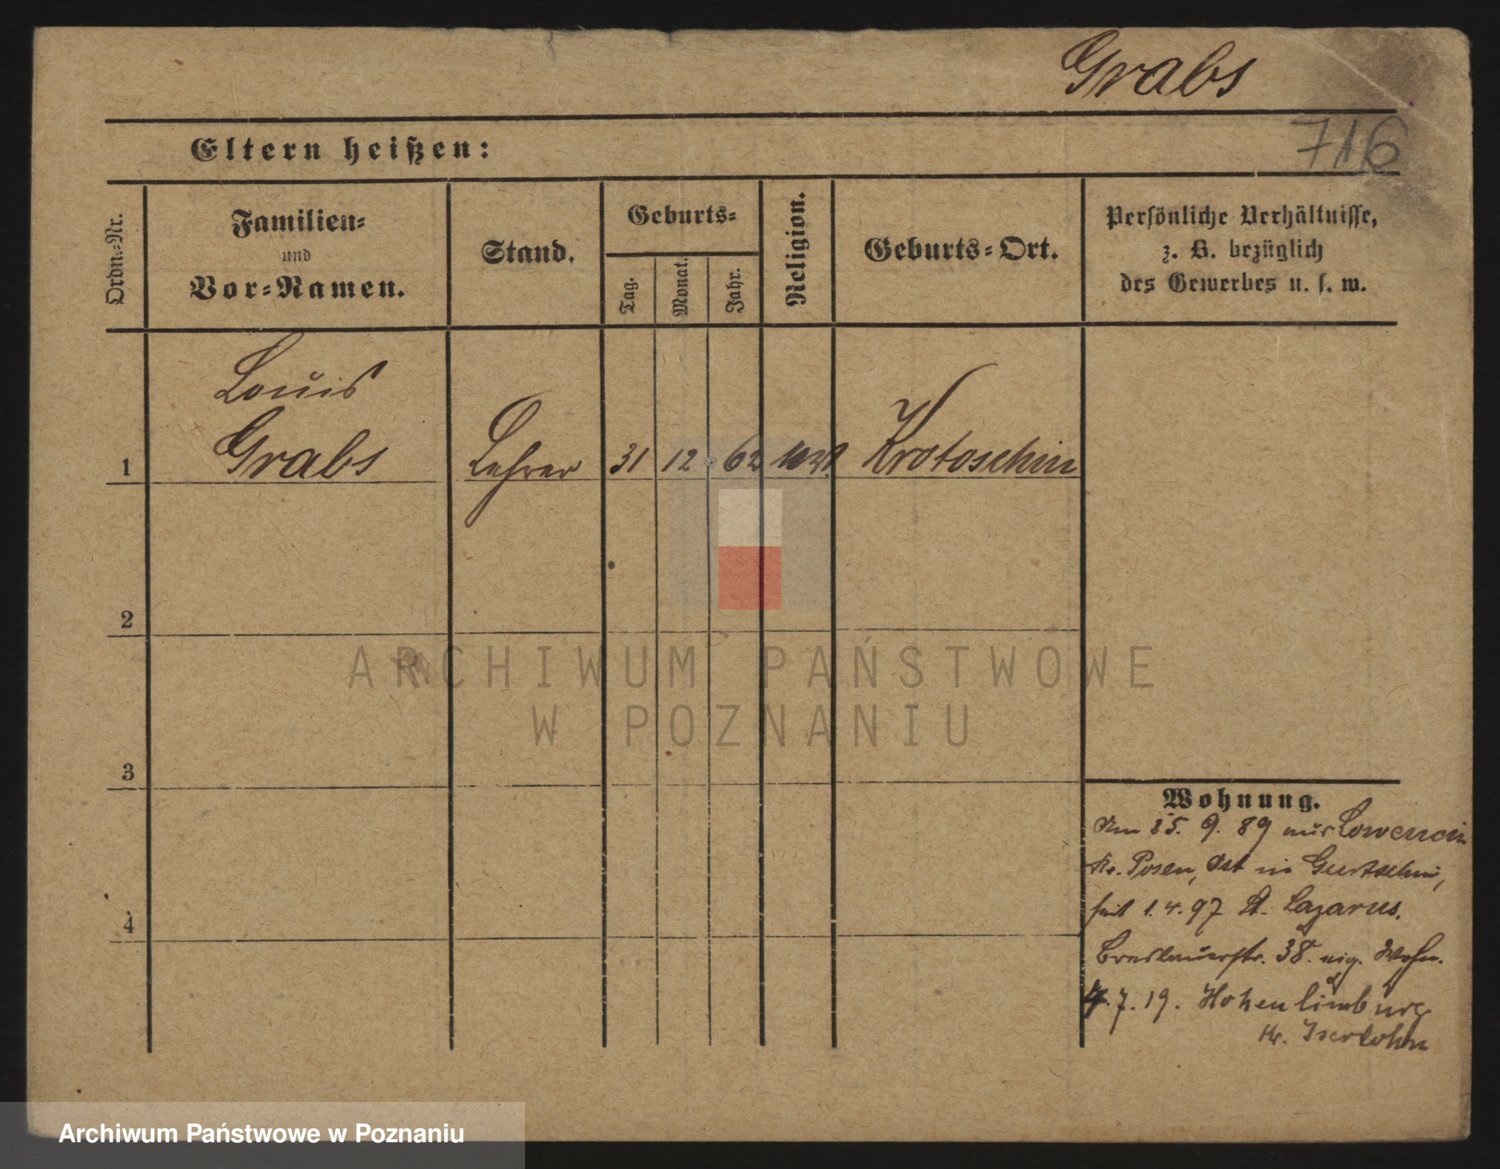 Grabs
716
Eltern heißen:
Ordn.-Nr.
Familien-
und
Vor-Namen.
Stand.
Geburts-
Tag.
Monat.
Jahr.
Religion.
Geburts-Ort.
Persönliche Verhältnisse,
z. B. bezüglich
des Gewerbes u. s. w.
Louis
1 Grabs Lehrer 31 12 62 Krotoschin
2
3
4
Wohnung.
Am 25. 9. 89 aus
Kr. Posen, Ost in Gurtschin,
seit 1.4.97 St. Lazarus.
Breslauerstr. 38. eig. Wohn.
4.7.19. Hohenlimburg
Kr. Iserlohn
ARCHIWUM PAŃSTWOWE
W POZNANIU
Archiwum Państwowe w Poznaniu